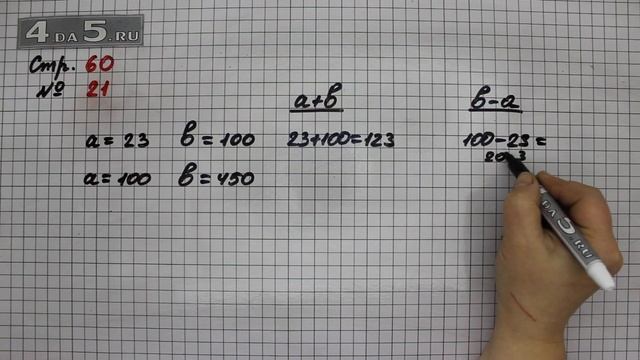 4 DA 5.RU
Стр. 60
№ 21
a+b b-a
a = 23 b = 100 23+100=123 100-23=
20 3
a = 100 b = 450
4 DA 5.RU